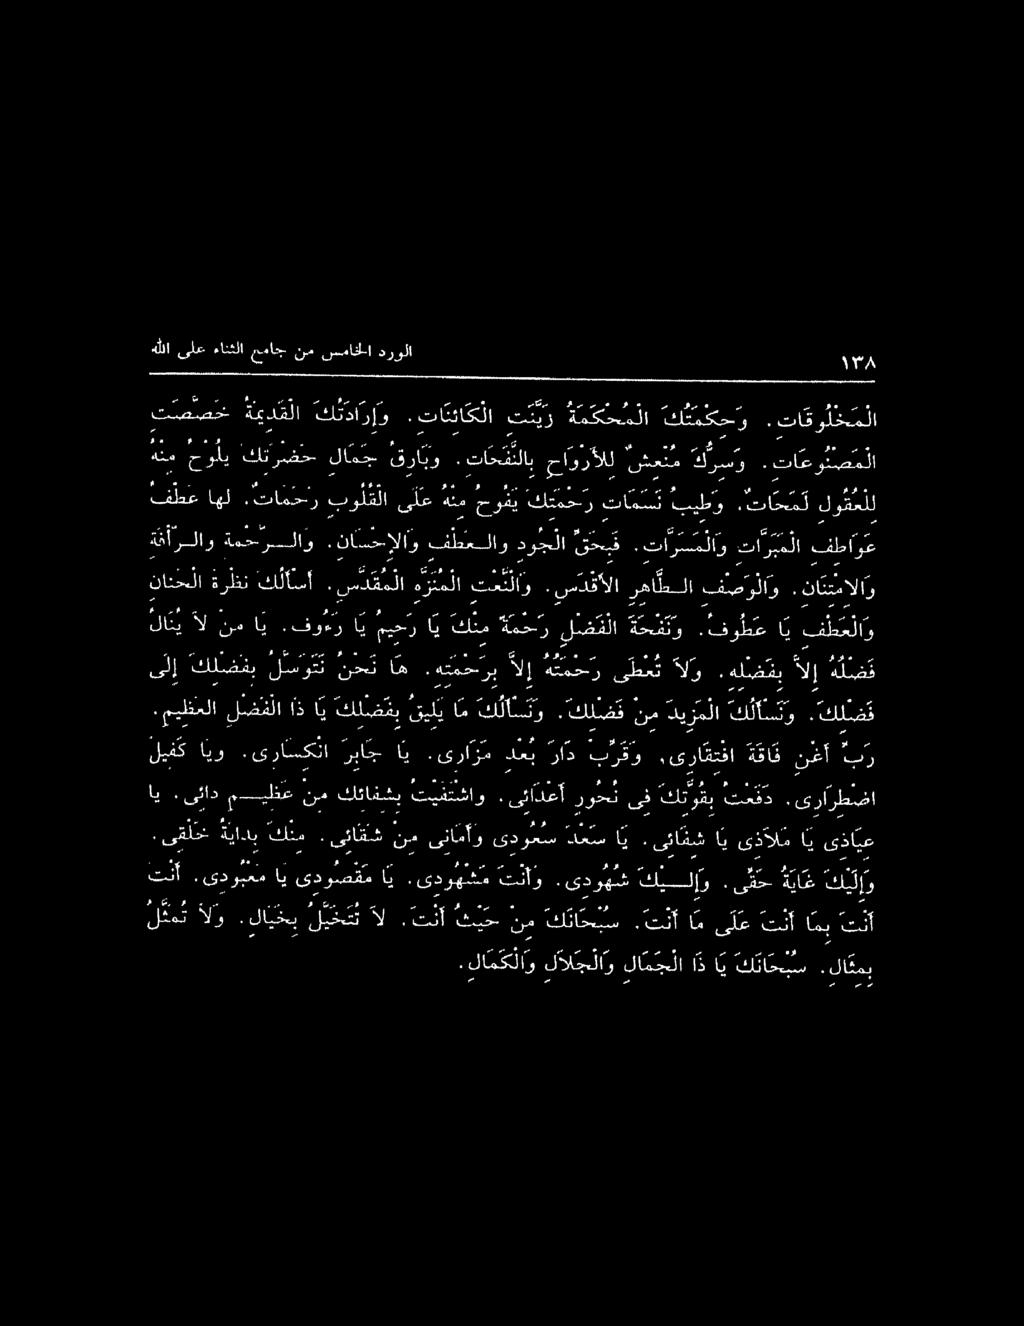 ١٣٨
الورد الخامس من جامع الثناء على الله
الْمَخْلُوقَاتِ. وَحِكْمَتُكَ الْمُحْكَمَةُ زَيَّنَتِ الْكَائِنَاتِ. وَإِرَادَتُكَ الْقَدِيمَةُ خَصَّصَتِ
الْمَصْنُوعَاتِ. وَسِرُّكَ مُنْعِشٌ لِلأَرْوَاحِ بِالنَّفَحَاتِ. وَبَارِقُ جَمَالِ حَضْرَتِكَ يَلُوحُ مِنْهُ
لِلْعُقُولِ لَمَحَاتٌ. وَطِيبُ نَسَمَاتِ رَحْمَتِكَ يَفُوحُ مِنْهُ عَلَى الْقُلُوبِ رَحَمَاتٌ. لها عَطْفُ
عَوَاطِفِ الْمَبَرَّاتِ وَالْمَسَرَّاتِ. فَبِحَقِّ الْجُودِ والـعَطْفِ وَالإِحْسَانِ. وَالـرَّحْمَةِ والـرَّأْفَةِ
وَالامْتِنَانِ. وَالْوَصْفِ الـطَّاهِرِ الأَقْدَسِ. وَالنَّعْتِ الْمُنَزَّهِ الْمُقَدَّسِ. أَسْأَلُكَ نَظْرَةَ الْحَنَانِ
وَالْعَطْفِ يَا عَطُوفُ. وَنَفْحَةَ الْفَضْلِ رَحْمَةً مِنْكَ يَا رَحِيمُ يَا رَءُوفُ. يَا مَنْ لاَ يُنَالُ
فَضْلُهُ إِلاَّ بِفَضْلِهِ. وَلاَ تُعْطَى رَحْمَتُهُ إِلاَّ بِرَحْمَتِهِ. هَا نَحْنُ نَتَوَسَّلُ بِفَضْلِكَ إِلَى
فَضْلِكَ. وَنَسْأَلُكَ الْمَزِيدَ مِنْ فَضْلِكَ. وَنَسْأَلُكَ مَا يَلِيقُ بِفَضْلِكَ يَا ذَا الْفَضْلِ الْعَظِيمِ.
رَبِّ أَغْنِ فَاقَةَ افْتِقَارِى. وَقَرِّبْ دَارَ بُعْدِ مَزَارِى. يَا جَابِرَ انْكِسَارِى. وَيَا كَفِيلَ
اضْطِرَارِى. دَفَعْتُ بِقُوَّتِكَ فِى نُحُورِ أَعْدَائِى. وَاشْتَفَيْتُ بِشِفَائِكَ مِنْ عَظِيـمِ دَائِى. يَا
عِيَاذِى يَا مَلاَذِى يَا شِفَائِى. يَا سَعْدَ سُعُودِى وَأَمَانِى مِنْ شَقَائِى. مِنْكَ بِدَايَةُ خَلْقِى.
وَإِلَيْكَ غَايَةُ حَقِّى. وَإِلـَيْكَ شُهُودِى. وَأَنْتَ مَشْهُودِى. يَا مَقْصُودِى يَا مَعْبُودِى. أَنْتَ
أَنْتَ بِمَا أَنْتَ عَلَى مَا أَنْتَ. سُبْحَانَكَ مِنْ حَيْثُ أَنْتَ. لاَ تُتَخَيَّلُ بِخَيَالٍ. وَلاَ تُمَثَّلُ
بِمِثَالٍ. سُبْحَانَكَ يَا ذَا الْجَمَالِ وَالْجَلاَلِ وَالْكَمَالِ.